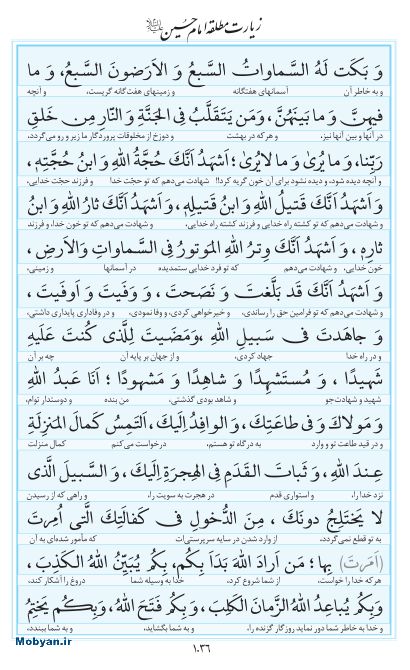 زیارت مطلقه امام حسین علیه‌السلام
وَ بَكَت لَهُ السَّماواتُ السَّبعُ وَ الاَرَضونَ السَّبعُ، وَ ما
و به خاطر آن آسمانهای هفتگانه و زمینهای هفت‌گانه گریست، و آنچه
فیهِنَّ وَ ما بَینَهُنَّ، وَمَن یَتَقَلَّبُ فِی الجَنَّةِ وَ النّارِ مِن خَلقِ
در آنها و بین آنها نیز، و هر که در بهشت و دوزخ از مخلوقات پروردگار ما زیر و رو می‌گردد،
رَبِّنا، وَ ما یُریٰ وَ ما لایُریٰ؛ اَشهَدُ اَنَّكَ حُجَّةُ اللهِ وَ ابنُ حُجَّتِهِ،
و آنچه دیده شود، و دیده نشود برای آن خون گریه کرد!! شهادت می‌دهم که تو حجّت خدا و فرزند حجّت خدایی،
وَ اَشهَدُ اَنَّكَ قَتیلُ اللهِ وَ ابنُ قَتیلِهِ، وَ اَشهَدُ اَنَّكَ ثارُ اللهِ وَ ابنُ
و شهادت می‌دهم که تو کشته راه خدایی و فرزند کشته راه خدایی، و شهادت می‌دهم که تو خون خدا، و فرزند
ثارِهِ، وَ اَشهَدُ اَنَّكَ وِترُ اللهِ المَوتورُ فِی السَّماواتِ وَالاَرضِ،
خون خدایی، و شهادت می‌دهم که تو فرد خدایی ستمدیده در آسمانها و زمینی،
وَ اَشهَدُ اَنَّكَ قَد بَلَّغتَ وَ نَصَحتَ، وَ وَفَیتَ وَ اَوفَیتَ،
و شهادت می‌دهم که تو فرامین حق را رساندی، و خیرخواهی کردی، و وفا نمودی، و در وفاداری پایداری داشتی،
وَ جاهَدتَ فی سَبیلِ اللهِ، وَمَضَیتَ لِلَّذی كُنتَ عَلَیهِ
و در راه خدا جهاد کردی، و از جهان بر پایه آن چه بر آن
شَهیدًا، وَ مُستَشهِدًا وَ شاهِدًا وَ مَشهودًا؛ اَنَا عَبدُ اللهِ
شهید و شهادت‌جو و شاهد بودی گذشتی، من بنده و دوستدار توام،
وَ مَولاكَ وَ فی طاعَتِكَ، وَ الوافِدُ اِلَیكَ، اَلتَمِسُ كَمالَ المَنزِلَةِ
و در قید طاعت تو و وارد به درگاه تو هستم، درخواست می‌کنم کمال منزلت
عِندَ اللهِ، وَ ثَباتَ القَدَمِ فِی الهِجرَةِ اِلَیكَ، وَ السَّبیلَ الَّذی
نزد خدا را، و استواری قدم در هجرت به سویت را، و راهی که از رسیدن
لا یَختَلِجُ دونَكَ، مِنَ الدُّخولِ فی كَفالَتِكَ الَّتی اُمِرتَ
به تو قطع نمی‌گردد، از وارد شدن در سایه سرپرستی‌ات که مأمور شده‌ای به آن
(اَمَرتَ) بِها؛ مَن اَرادَ اللهَ بَدَاَ بِكُم، بِكُم یُبَیِّنُ اللهُ الكَذِبَ،
هر که خدا را خواست، از شما شروع کرد، خدا به وسیله شما دروغ را آشکار کند،
وَ بِكُم یُباعِدُ اللهُ الزَّمانَ الكَلِبَ، وَ بِكُم فَتَحَ اللهُ، وَ بِكُم یَختِمُ
و خدا به خاطر شما دور نماید روزگار گزنده را، و به شما بگشاید، و به شما ببندد،
۱۰۳۶
Mobyan.ir